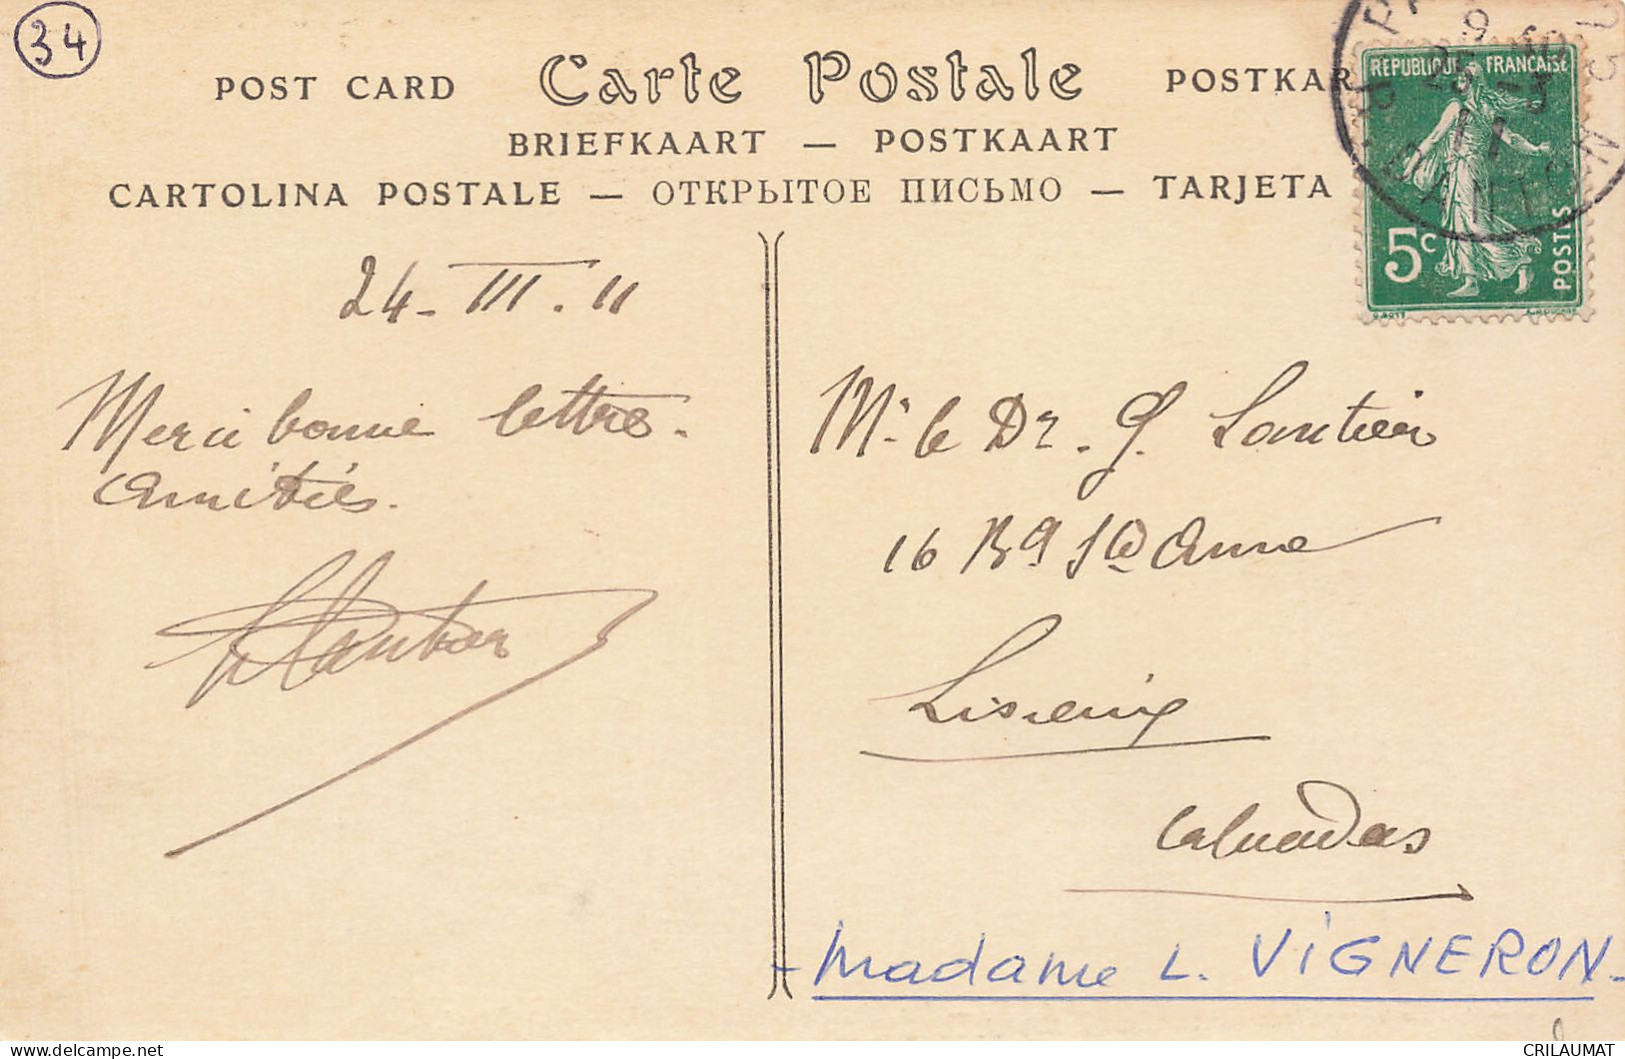 34
POST CARD Carte Postale POSTKAR
BRIEFKAART — POSTKAART
CARTOLINA POSTALE — ОТКРЫТОЕ ПИСЬМО — TARJETA
REPUBLIQUE FRANÇAISE
5c
POSTES
24-III.11
Merci bonne lettre.
Amitiés.
Mr le Dr. G.
16 Bd Ste Anne
Lisieux
Calvados
Madame L. VIGNERON
CRILAUMAT